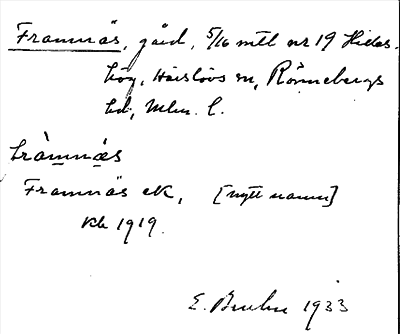 Framnäs, gård, 5/16 mtl nr 19 Hildes-
hög, Häslövs sn, Rönnebergs
hd, Mlm. l.
fràmnä̀s
Framnäs ek, [nytt namn]
Kb 1919.
E. Bruhn 1933